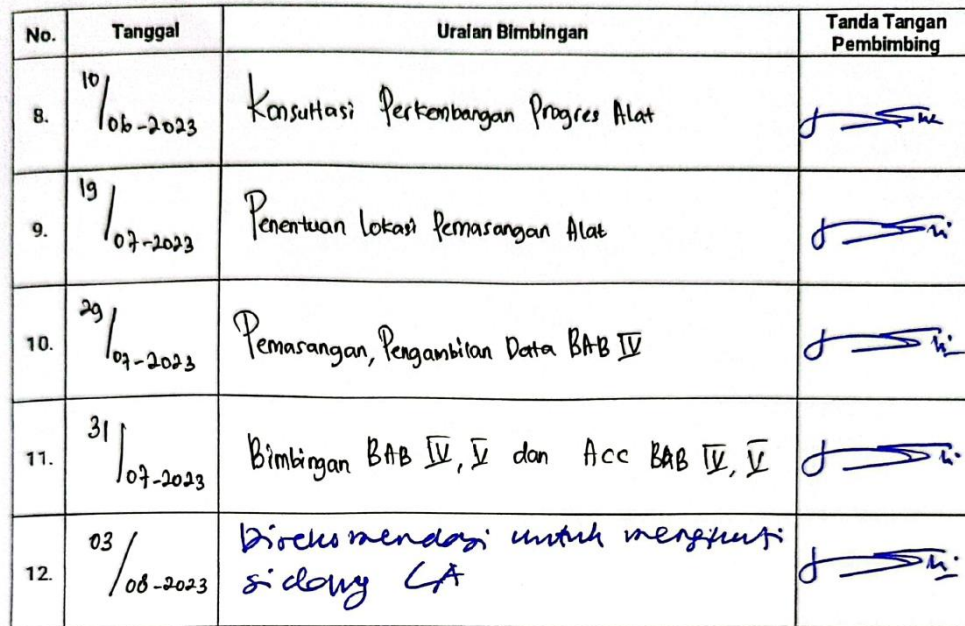 No. Tanggal Uraian Bimbingan Tanda Tangan
Pembimbing
8. 10/06-2023 Konsultasi Perkembangan Progres Alat
9. 19/07-2023 Penentuan Lokasi Pemasangan Alat
10. 29/07-2023 Pemasangan, Pengambilan Data BAB IV
11. 31/07-2023 Bimbingan BAB IV, V dan Acc BAB IV, V
12. 03/08-2023 Direkomendasi untuk mengikuti
sidang LA